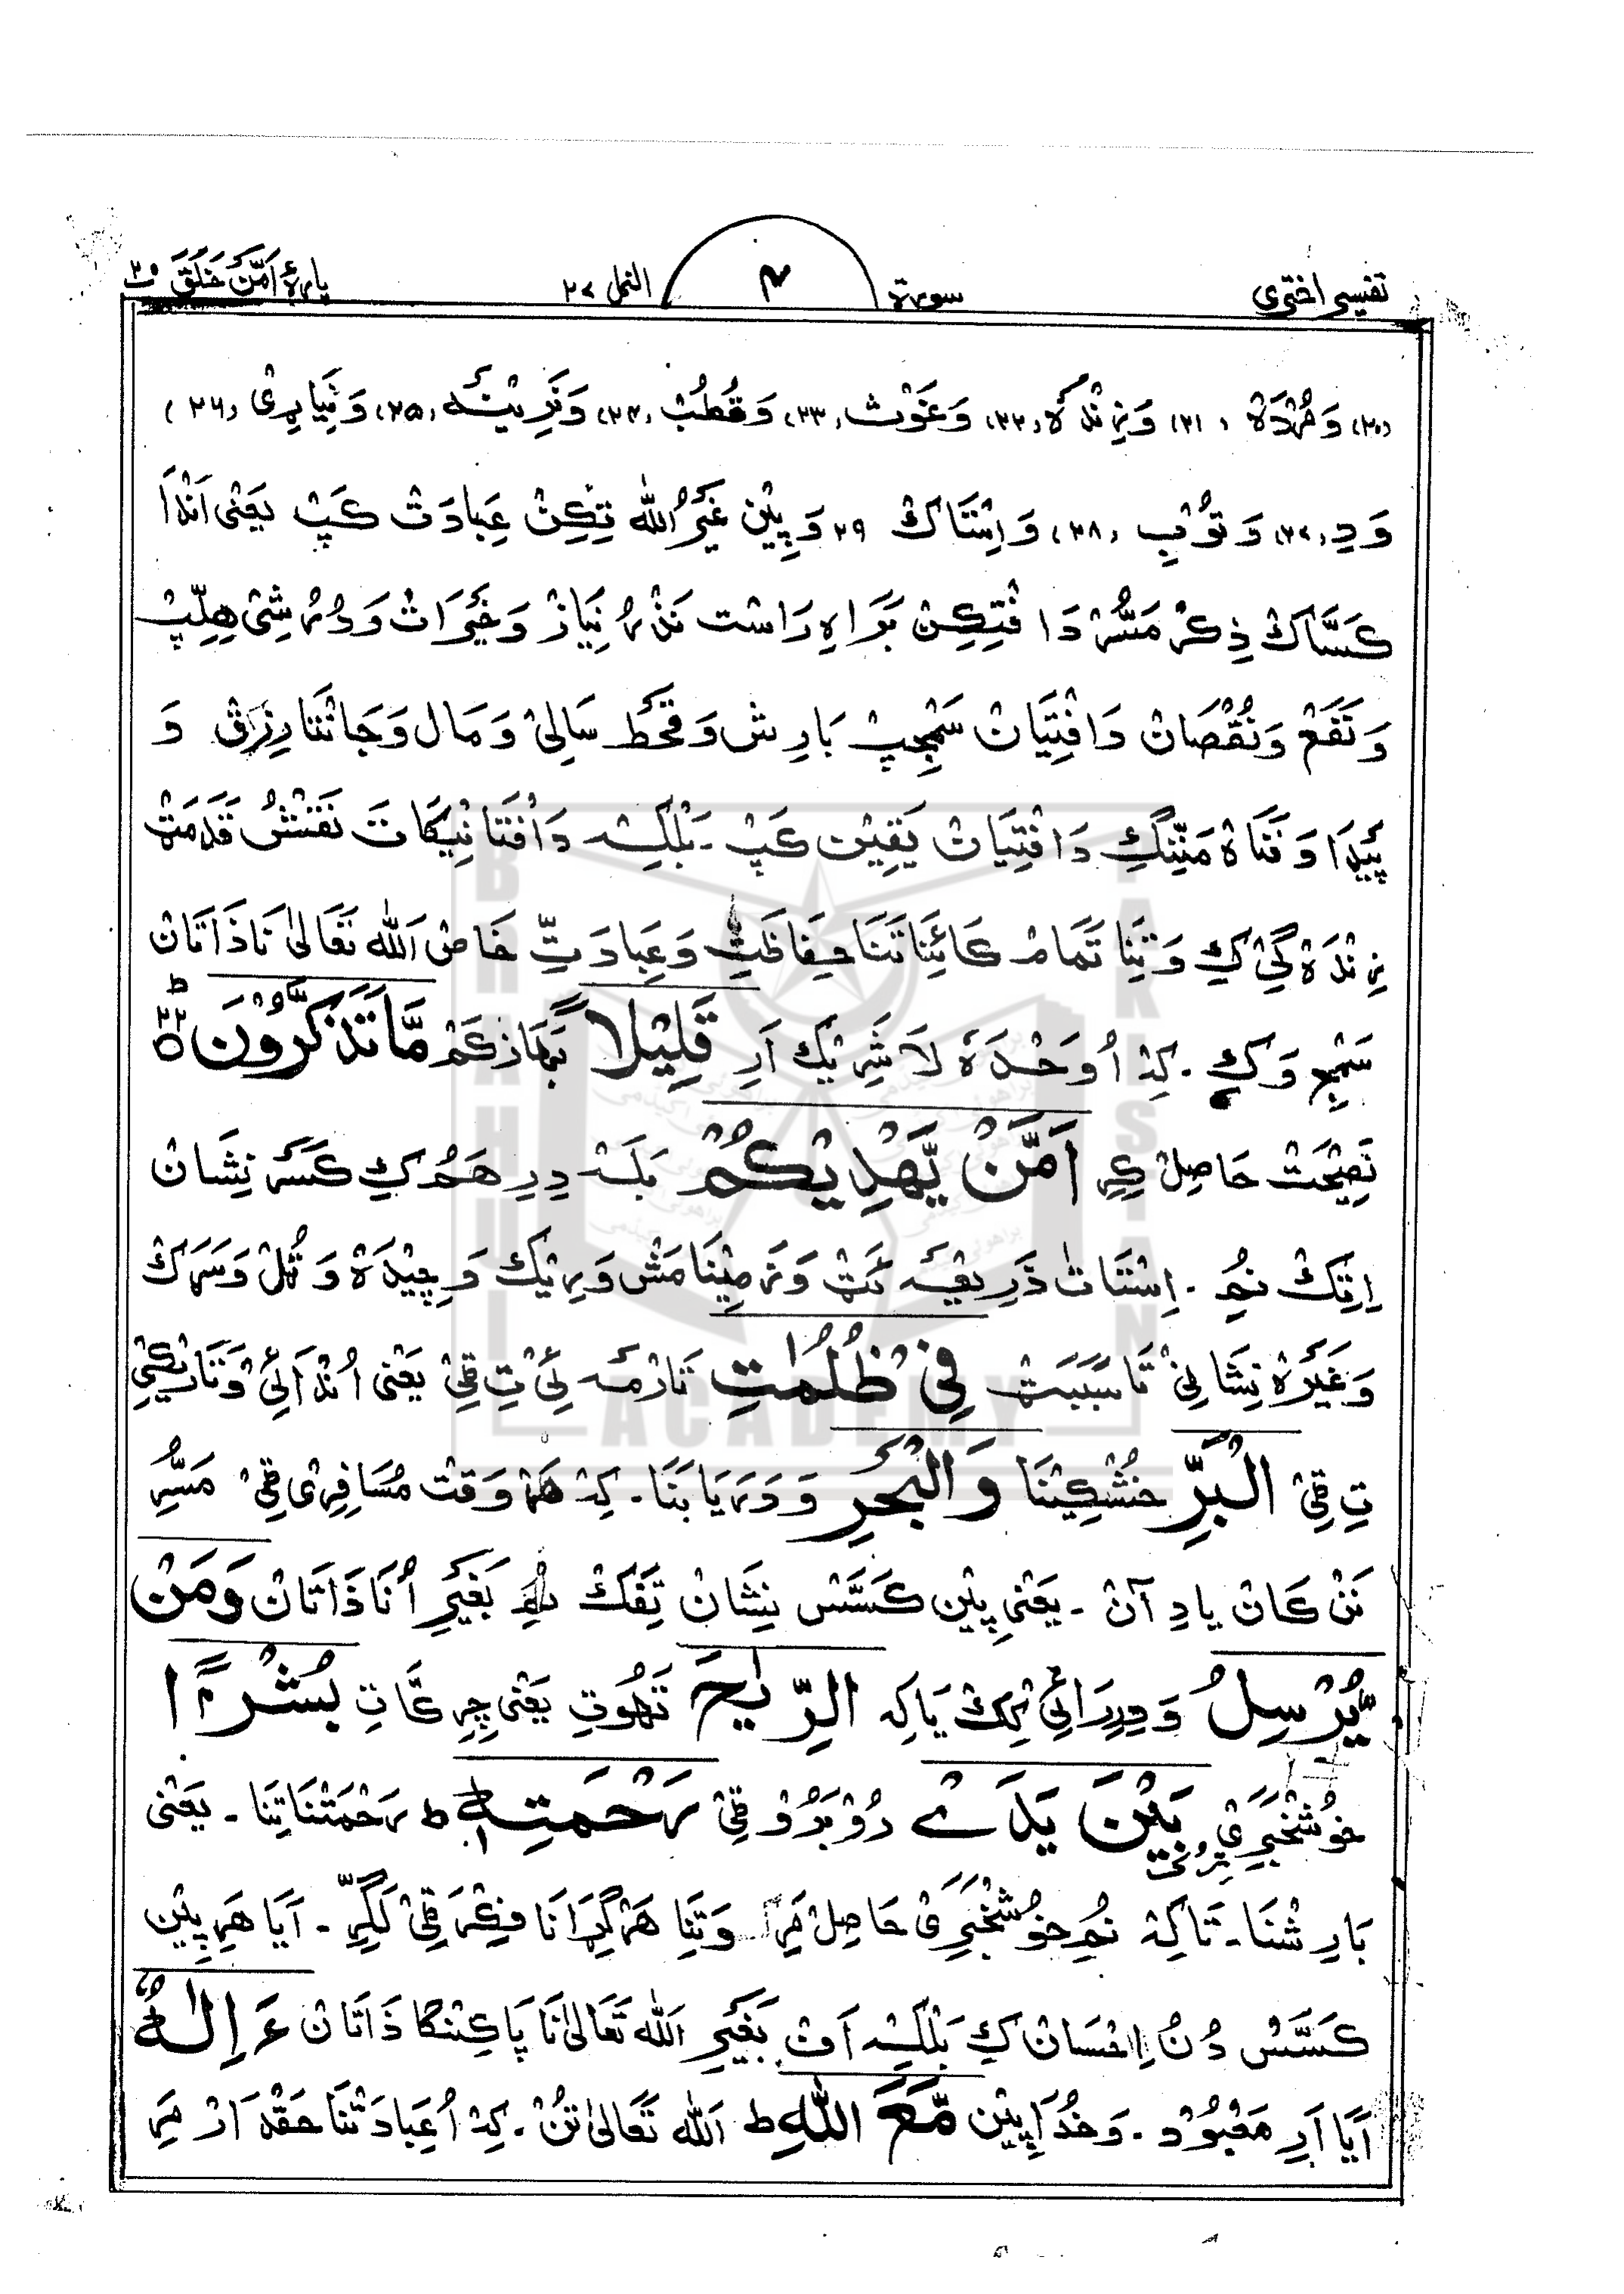 تفسیر اختری سورة ۴ النمل ۲۷ پارۂ اَمَّنْ خَلَقَ ۲۰
(۳۰) وَ مُرْدَهْ (۳۱) وَ زِنْدَه (۳۲) وَ غَوْث (۳۳) وَ قُطُبْ (۳۴) وَ نَرِیْنَه (۳۵) وَ نِیَارِیْ (۳۶)
وَ دِ (۳۷) وَ تُوْبِ (۳۸) وَ اِسْتَاكْ ۳۹ وَ پِیْن غَیْرُ اللّٰه تِکِنْ عِبَادَتْ کَپْ یَعْنِی اَنْدَا
کَسَّاكْ ذِکْرْ مَسُّرْ دَا فْتِکِنْ بَرَاهِ رَاسْت نَذْرْ نِیَازْ وَ خَیْرَاتْ وَ دُرْشِیْ هِلِّپْ
وَ نَفَعْ وَ نُقْصَانْ دَافْتِیَانْ سَمْجِپْ بَارِش وَ قَحْط سَالِیْ وَ مَال وَ جَانْنَا رِزْقْ وَ
پَیْدَا وَ فَنَاهْ مَنِّنْگِ دَافْتِیَانْ یَقِیْن کَپْ ۔ بَلْکِه دَافْتَا نِیْکَاتَ نَقْشِ قَدَمَتْ
زِنْدَهْ گِیْ کِ وَ تِنَا تَمَامْ کَائِنَاتَنَا حِفَاظَتِ وَ عِبَادَتِ خَاصْ اَللّٰه تَعَالٰی نَا ذَاتَانْ
سَمْجِ وَ کِ ۔ کِهْ اُ وَحْدَهٗ لَا شَرِیْك اَرِ قَلِیْلًا بَهَازْ کَمْ مَّا تَذَکَّرُوْنَ ط ۶۲
نَصِیْحَتْ حَاصِلْ کِرِ اَمَّنْ یَّهْدِیْکُمْ بَلَه دِرِ هَمُ کِ کَسَرْ نِشَانْ
اِتِكْ نُمِ ۔ اِسْتَاتْ ذَرِیْعَه ئَتْ وَ زَمِیْنَا مَشْ وَ رِیْك وَ چِیْدَهْ وَ تُلْ وَ سَرَكْ
وَ غَیْرَهْ نِشَانِیْ تَا سَبَبَتْ فِیْ ظُلُمٰتِ تَارْمَه ئِیْ تِ قِیْ یَعْنِی اُنْدَائِیْ وَ تَارِیْکِیْ
تِ قِیْ الْبَرِّ خُشْکِیْنَا وَالْبَحْرِ وَ دَرْیَابَنَا ۔ کِهْ هَرْ وَقْتْ مُسَافِرِیْ قِیْ مَسُّرِ
نَنْ کَانْ یَادِ آنْ ۔ یَعْنِی پِیْن کَسَّسْ نِشَانْ تِفَكْ بَغَیْرِ اُنَا ذَاتَانْ وَمَنْ
یُّرْسِلُ وَ دِرِ رَائِیْ کِكْ یَا کِه الرِّیٰحَ تَهُوتِ یَعْنِی چِرِ کَّاتِ بُشْرًا
خُوشْخَبَرِیْ بَیْنَ یَدَیْ رُوْبَرُوْ قِیْ رَحْمَتِهٖ ط رَحْمَتْنَا تِنَا ۔ یَعْنِی
بَارِشْنَا ۔ تَاکِهْ نُمِ خُوشْخَبَرِیْ حَاصِلْ مَرِ وَ تِنَا هَرْ گِرَانَا فِکْرَ قِیْ لَگِرِّ ۔ آیَا هَرِ پِیْن
کَسَّسْ دُنُ اِنْسَانْ کِ بَلْکِه اَتْ بَغَیْرِ اَللّٰه تَعَالٰی نَا پَاکِنْگَا ذَاتَانْ ءَاِلٰهٌ
آیَا اَرِ مَعْبُوْد ۔ وَ خُدَا پِیْن مَّعَ اللّٰهِ ط اَللّٰه تَعَالٰی تُنْ ۔ کِهْ اُ عِبَادَتْنَا حَقْدَارْ مَرِ
BRAHUI ACADEMY PAKISTAN